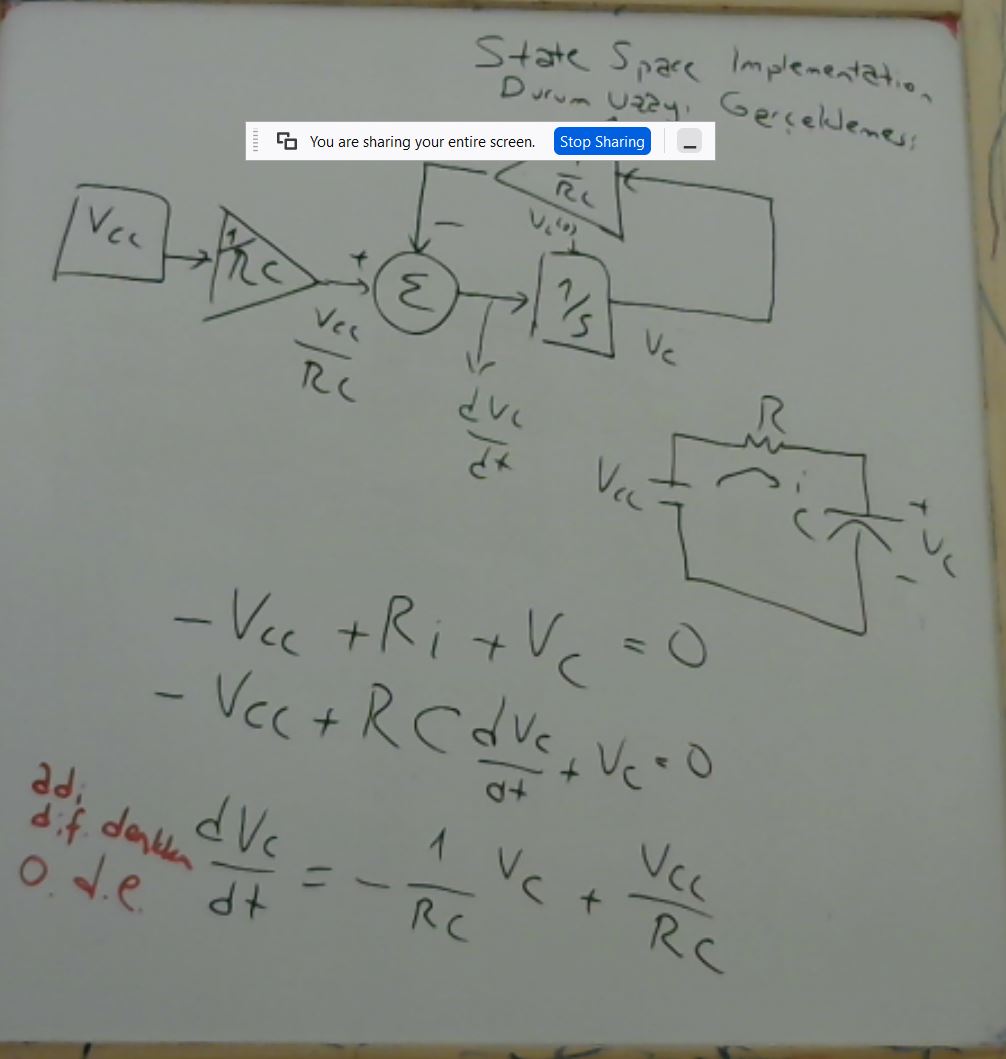 State Space Implementation
Durum Uzayı Gerçeklemesi
You are sharing your entire screen. Stop Sharing
1/RC
Vc(0)
Vcc
1/RC
+
−
Σ
1/s
Vcc/RC
Vc
dVc/dt
R
Vcc
i
C
+
Vc
−
−Vcc + Ri + Vc = 0
−Vcc + RC dVc/dt + Vc = 0
adi
dif. denklem
o.d.e.
dVc/dt = −1/RC Vc + Vcc/RC